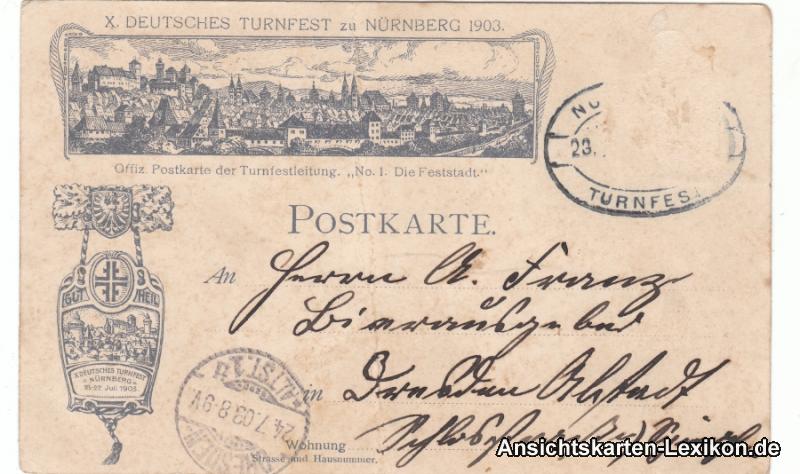 X. DEUTSCHES TURNFEST zu NÜRNBERG 1903.
Offiz. Postkarte der Turnfestleitung. „No. 1. Die Feststadt."
NU
23.
TURNFES
POSTKARTE.
An Herrn A. Franz
Bierausgeber
in Dresden Altstadt
Schlos
Wohnung
Strasse und Hausnummer.
GUT HEIL
X. DEUTSCHES TURNFEST
NÜRNBERG
18-22. Juli 1903.
ALTST.
24.7.03.8-9V.
Ansichtskarten-Lexikon.de